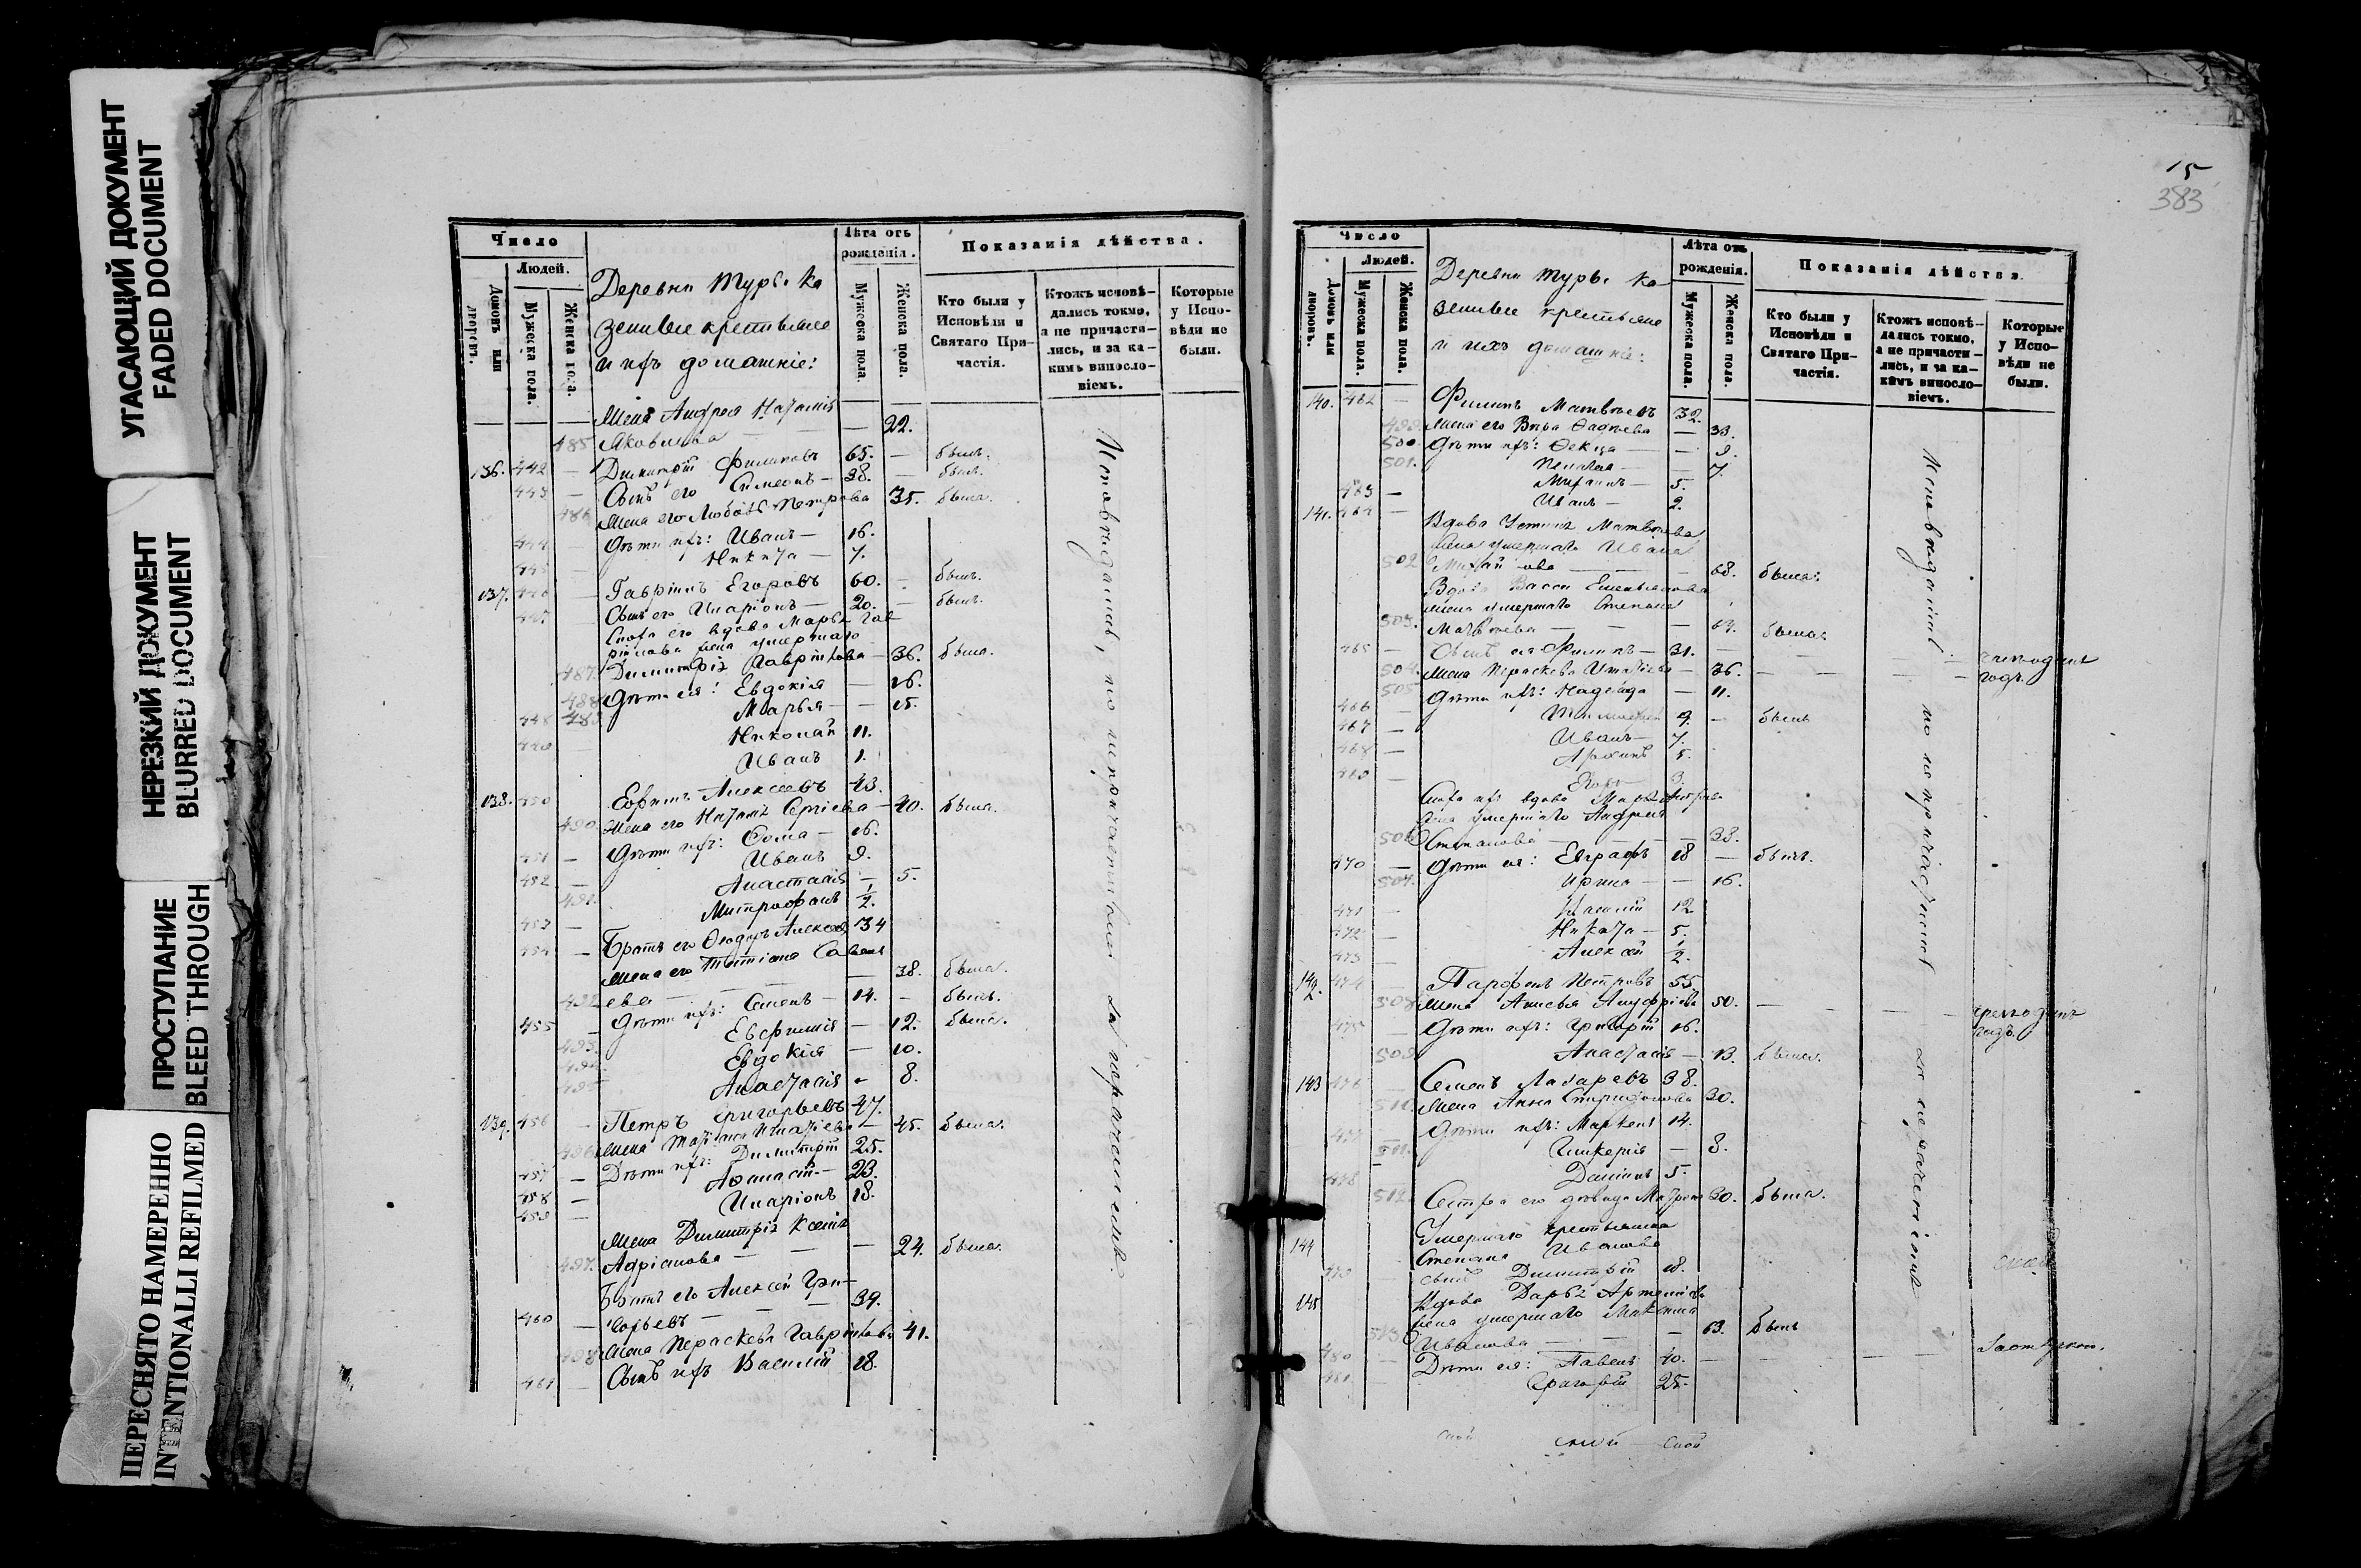 УГАСАЮЩИЙ ДОКУМЕНТ
FADED DOCUMENT
НЕРЕЗКИЙ ДОКУМЕНТ
BLURRED DOCUMENT
ПРОСТУПАНИЕ
BLEED THROUGH
ПЕРЕСНЯТО НАМЕРЕННО
INTENTIONALLI REFILMED
Число
Людей.
Домовъ или дворовъ.
Мужеска пола.
Женска пола.
Деревни Туры ка
зенные крестьяне
и ихъ домашніе:
Лѣта отъ рожденія.
Мужеска пола.
Женска пола.
Показанія дѣйства.
Кто были у Исповѣди и Святаго Причастія.
Ктожъ исповѣдались токмо, а не причастились, и за какимъ винословіемъ.
Которые у Исповѣди не были.
Жена Андрея Наталія
485 Яковлева — — — 22.
136. 442 — Димитрій Филиповъ 65. — былъ.
443 — Сынъ его Симеонъ — 38. — былъ.
486 Жена его Любовь Петрова 35. была.
444 — Дѣти ихъ: Иванъ — 16.
445 — Никита — 7.
137. 446 — Гавріилъ Егоровъ 60. — былъ.
447 Сынъ его Иларіонъ — 20. — былъ.
Сноха его вдова Марья Гав
ріилова жена умершаго
487. Димитрія Гаврілова — 36. была.
488 Дѣти ея: Евдокія — 16.
489 Марья — — 15.
448 Николай 11.
449 Иванъ 1.
138. 450 Ефимъ Алексеевъ 43.
490 Жена его Наталія Сергіева — 40. была.
451 — Дѣти ихъ: Ѳома — 16.
452 — Иванъ 9.
491. Анастасія — 5.
453 — Митрофанъ 1/2.
454 — Братъ его Ѳеодоръ Алексеев 34
Жена его Татіана Савель
492 ева — — — 38. была.
455 — Дѣти ихъ: Семенъ — 14. — былъ.
493. Евфимія — 12. была.
494 Евдокія — 10.
495 Анастасія — 8.
139. 456 — Петръ Григорьевъ 47.
496 Жена Татіана Игнатіева — 45. была.
457 — Дѣти ихъ: Димитрій 25.
458 — Аѳанасій — 23.
459 — Иларіонъ 18.
Жена Димитрія Ксенія
497. Адріанова — — — 24. была.
Братъ его Алексей Гри-
460 — горьевъ — — 39.
498 Жена Параскева Гаврілова 41.
461 — Сынъ ихъ Василій 18.
Исповѣдались, но не причастились за нераченіемъ.
15
383
Число
Людей.
Домовъ или дворовъ.
Мужеска пола.
Женска пола.
Деревни Туры ка-
зенные крестьяне
и ихъ домашніе:
Лѣта отъ рожденія.
Мужеска пола.
Женска пола.
Показанія дѣйства.
Кто были у Исповѣди и Святаго Причастія.
Ктожъ исповѣдались токмо, а не причастились, и за какимъ винословіемъ.
Которые у Исповѣди не были.
140. 462 — Филипъ Матвѣевъ 32.
499. Жена его Вѣра Ѳадѣева — 33.
500. Дѣти ихъ: Ѳекла — — 9.
501. Пелагія — — 7.
463 — Михаилъ — 5.
141. 464 — Иванъ — 2.
Вдова Устинья Матвѣева
жена умершаго Ивана
502 — 68. была.
Вдова Васса Емельянова
жена умершаго Степана
503. Матвѣева — — — 64. была.
465 — Сынъ ея Филипъ — 31.
504. Жена Параскева Игнатіева — 36.
505 Дѣти ихъ: Надежда — 11.
466 — Тимоѳей 9. — былъ
467 — Иванъ — 7.
468 — Архипъ 5.
469 — Егоръ 3.
Сноха ихъ вдова Марья
жена умершаго Андрея
506 Степанова — — 38.
470 — Дѣти ея: Евграфъ 18 — былъ.
507. Ирина — — 16.
471 — Василій 12
472 — Никита — 5.
473 — Алексей 1/2.
142 474 — Парфенъ Петровъ 55
508 Жена Анисья Ануфріева 50.
475 — Дѣти ихъ: Григорій 16.
509. Анастасія — 13. была.
143 476 — Семенъ Лазаревъ 38.
510. Жена Анна Спиридонова 30.
477 Дѣти ихъ: Маркелъ 14.
511. Гликерія — 8.
478 Даніилъ 5.
512. Сестра его дѣвица Матрона 30. была.
144 Умершаго крестьянина
Степана Иванова
479 — сынъ Димитрій 18.
145 Вдова Дарья Артемьева
жена умершаго Михаила
513 Иванова — — 63. была
480 — Дѣти ея: Павелъ 40.
481 Григорій 25.
Исповѣдались но не причастились за нераченіемъ